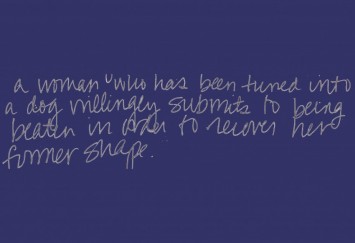 a woman "who has been turned into
a dog willingly submits to being
beaten in order to recover her
former shape.